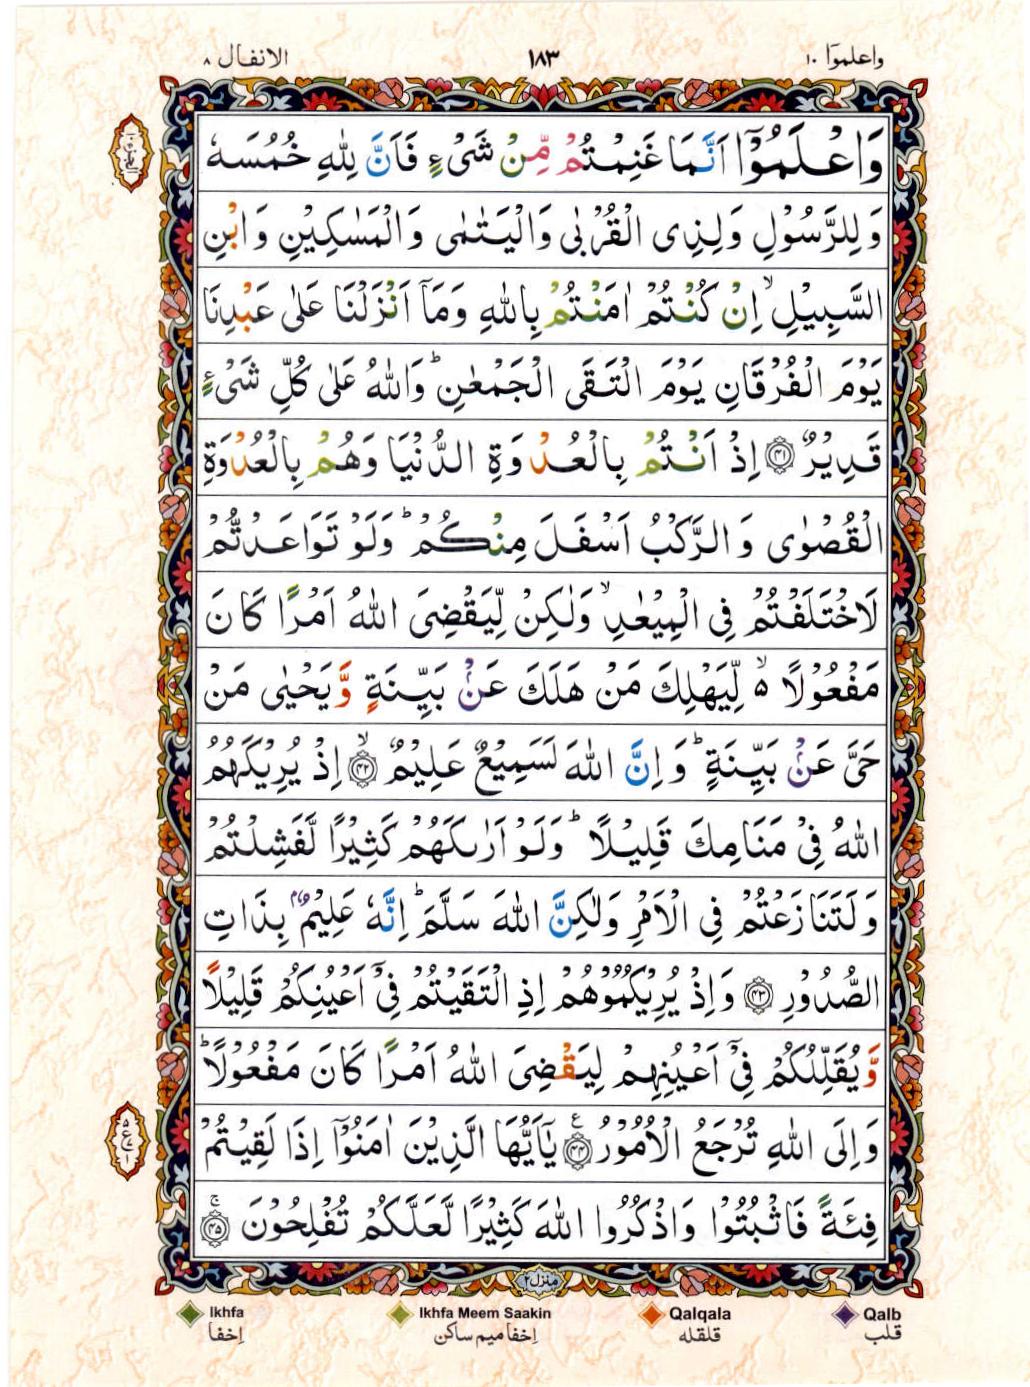 واعلموٓا ١٠
١٨٣
الانفال ٨
الجزء ١٠
وَاعۡلَمُوۡۤا اَنَّمَا غَنِمۡتُمۡ مِّنۡ شَىۡءٍ فَاَنَّ لِلّٰهِ خُمُسَهٗ
وَ لِلرَّسُوۡلِ وَلِذِى الۡقُرۡبٰى وَالۡيَتٰمٰى وَالۡمَسٰكِيۡنِ وَ ابۡنِ
السَّبِيۡلِ ۙ اِنۡ كُنۡتُمۡ اٰمَنۡتُمۡ بِاللّٰهِ وَمَاۤ اَنۡزَلۡنَا عَلٰى عَبۡدِنَا
يَوۡمَ الۡفُرۡقَانِ يَوۡمَ الۡتَقَى الۡجَمۡعٰنِ ؕ وَاللّٰهُ عَلٰى كُلِّ شَىۡءٍ
قَدِيۡرٌ ﴿۴۱﴾ اِذۡ اَنۡتُمۡ بِالۡعُدۡوَةِ الدُّنۡيَا وَهُمۡ بِالۡعُدۡوَةِ
الۡقُصۡوٰى وَ الرَّكۡبُ اَسۡفَلَ مِنۡكُمۡ ؕ وَلَوۡ تَوَاعَدْتُّمۡ
لَاخۡتَلَفۡتُمۡ فِى الۡمِيۡعٰدِ ۙ وَلٰكِنۡ لِّيَقۡضِىَ اللّٰهُ اَمۡرًا كَانَ
مَفۡعُوۡلًا ۙ۵ لِّيَهۡلِكَ مَنۡ هَلَكَ عَنۡۢ بَيِّنَةٍ وَّيَحۡيٰى مَنۡ
حَىَّ عَنۡۢ بَيِّنَةٍ ؕ وَ اِنَّ اللّٰهَ لَسَمِيۡعٌ عَلِيۡمٌ ۙ﴿۴۲﴾ اِذۡ يُرِيۡكَهُمُ
اللّٰهُ فِىۡ مَنَامِكَ قَلِيۡلًا ؕ وَلَوۡ اَرٰٮكَهُمۡ كَثِيۡرًا لَّفَشِلۡتُمۡ
وَلَتَنَازَعۡتُمۡ فِى الۡاَمۡرِ وَلٰكِنَّ اللّٰهَ سَلَّمَ ؕ اِنَّهٗ عَلِيۡمٌۢ بِذَاتِ
الصُّدُوۡرِ ﴿۴۳﴾ وَ اِذۡ يُرِيۡكُمُوۡهُمۡ اِذِ الۡتَقَيۡتُمۡ فِىۡۤ اَعۡيُنِكُمۡ قَلِيۡلًا
وَّيُقَلِّلُكُمۡ فِىۡۤ اَعۡيُنِهِمۡ لِيَقۡضِىَ اللّٰهُ اَمۡرًا كَانَ مَفۡعُوۡلًا ؕ
وَ اِلَى اللّٰهِ تُرۡجَعُ الۡاُمُوۡرُ ﴿۴۴﴾ ع يٰۤاَيُّهَا الَّذِيۡنَ اٰمَنُوۡۤا اِذَا لَقِيۡتُمۡ
فِئَةً فَاثۡبُتُوۡا وَاذۡكُرُوا اللّٰهَ كَثِيۡرًا لَّعَلَّكُمۡ تُفۡلِحُوۡنَ ۚ﴿۴۵﴾
منزل ٢
Ikhfa Ikhfa Meem Saakin Qalqala Qalb
اِخفا اِخفا میم ساکن قلقله قلب